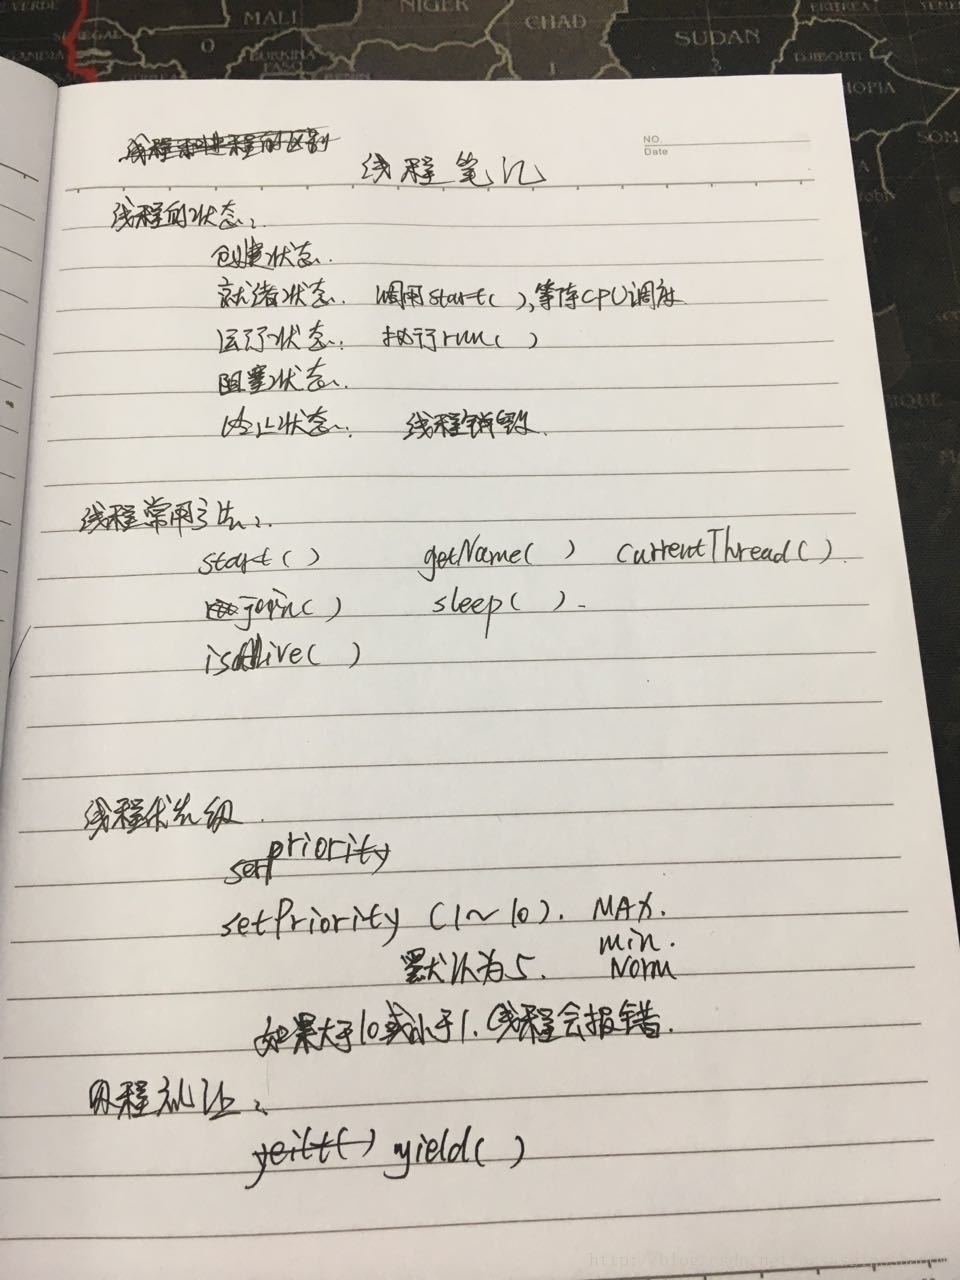 MALI
NIGER
CHAD
SUDAN
ERITREA
DJIBOUTI
BURKINA
FASO
线程和进程的区别
NO.
Date
线程笔记
线程的状态:
创建状态.
就绪状态. 调用start( ),等阵CPU调度
运行状态. 执行run( )
阻塞状态.
终止状态. 线程销毁.
线程常用方法:
start( ) getName( ) currentThread( ).
join( ) sleep( ).
isAlive( )
线程优先级
priority
setPriority (1~10). MAX.
min.
默认为5. Norm
如果大于10或小于1.线程会报错.
yeilt( ) yield( )